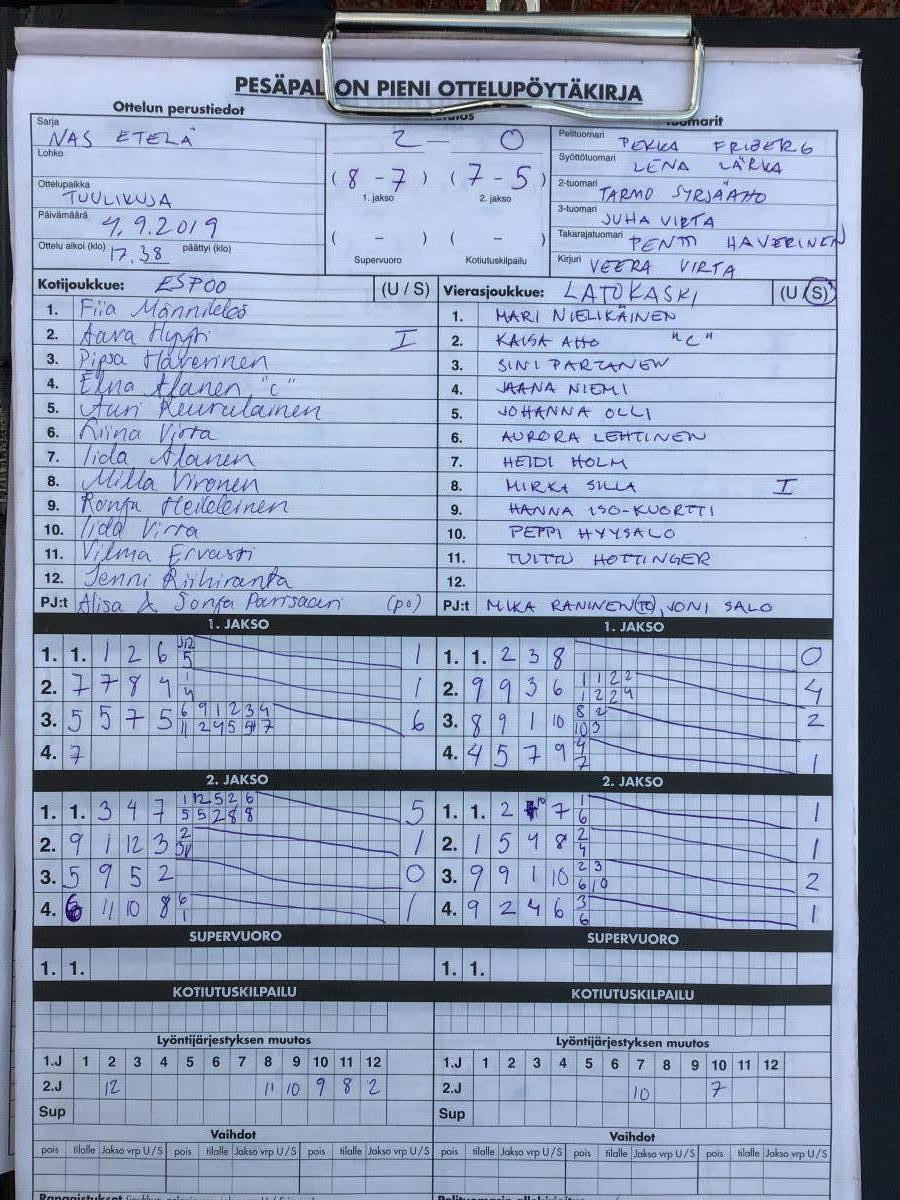 PESÄPAL ON PIENI OTTELUPÖYTÄKIRJA
Ottelun perustiedot
Sarja NAS ETELÄ
Lohko
Ottelupaikka TUULIKUJA
Päivämäärä 4.9.2019
Ottelu alkoi (klo) 17.38 päättyi (klo)
2 — 0
( 8 - 7 ) ( 7 - 5 )
1. jakso 2. jakso
( - ) ( - )
Supervuoro Kotiutuskilpailu
Pelituomari PEKKA FRIBERG
Syöttötuomari LENA LÄRKA
2-tuomari TARMO SYRJÄAHO
3-tuomari JUHA VIRTA
Takarajatuomari PENTTI HAVERINEN
Kirjuri VEERA VIRTA
Kotijoukkue: ESPOO (U / S)
1. Fiia Männikkö
2. Aava Hyyti I
3. Pipsa Haverinen
4. Elna Alanen "C"
5. Auri Keurulainen
6. Riina Virta
7. Iida Alanen
8. Milla Vironen
9. Ronja Heikkinen
10. Iida Virta
11. Vilma Ervasti
12. Jenni Riihiranta
PJ:t Alisa & Sonja Parssaari (po)
Vierasjoukkue: LATOKASKI (U / S)
1. MARI NIELIKÄINEN
2. KAISA AHO "C"
3. SINI PARTANEN
4. JAANA NIEMI
5. JOHANNA OLLI
6. AURORA LEHTINEN
7. HEIDI HOLM
8. MIRKA SILLA I
9. HANNA ISO-KUORTTI
10. PEPPI HYYSALO
11. TUITTU HOTTINGER
12.
PJ:t MIKA RANINEN, JONI SALO
1. JAKSO
1. 1. 1 2 6 1
2. 7 7 8 4 1 4 1
3. 5 5 7 5 6 9 1 2 3 4 6
4. 7
1. JAKSO
1. 1. 2 3 8 0
2. 9 9 3 6 1 1 2 2 4
1 2 2 4
3. 8 9 1 10 8 2 2
10 3
4. 4 5 7 9 4 1
7
2. JAKSO
1. 1. 3 4 7 1 12 5 2 6 5
5 5 2 8 8
2. 9 1 12 3 2 1
3. 5 9 5 2 0
4. 6 11 10 8 6 1
1
2. JAKSO
1. 1. 2 10 7 1 1
6
2. 1 5 4 8 2 1
4
3. 9 9 1 10 2 3 2
6 10
4. 9 2 4 6 3 1
6
SUPERVUORO
1. 1.
SUPERVUORO
1. 1.
KOTIUTUSKILPAILU
KOTIUTUSKILPAILU
Lyöntijärjestyksen muutos
1.J 1 2 3 4 5 6 7 8 9 10 11 12
2.J 12 11 10 9 8 2
Sup
Lyöntijärjestyksen muutos
1.J 1 2 3 4 5 6 7 8 9 10 11 12
2.J 10 7
Sup
Vaihdot
pois tilalle Jakso vrp U / S pois tilalle Jakso vrp U / S pois tilalle Jakso vrp U / S
Vaihdot
pois tilalle Jakso vrp U / S pois tilalle Jakso vrp U / S pois tilalle Jakso vrp U / S